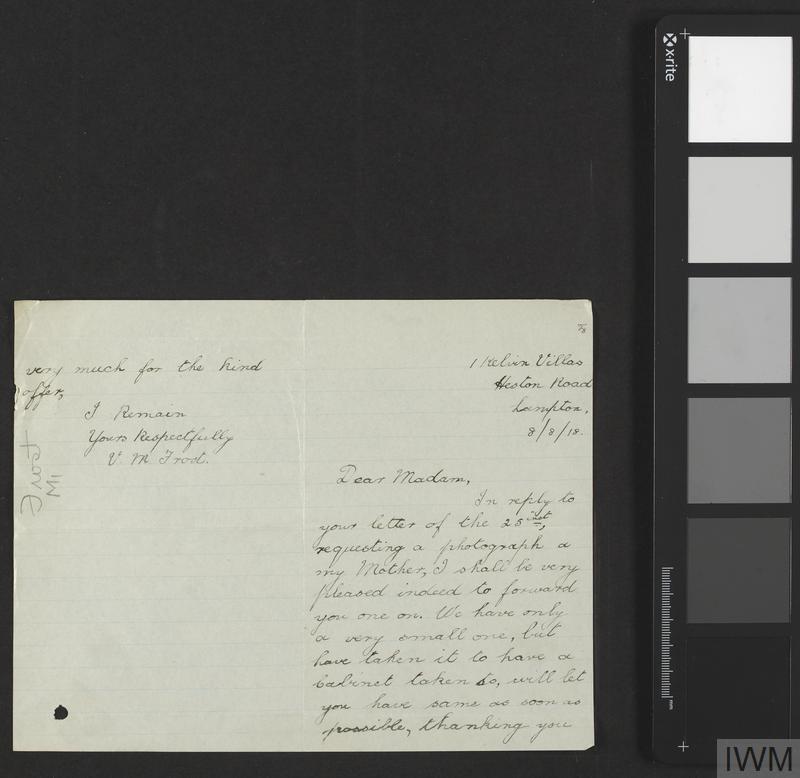 7/8
1 Kelvin Villas
Heston Road
Lampton,
8/8/18.
Dear Madam,
In reply to
your letter of the 25 inst,
requesting a photograph a
my Mother, I shall be very
pleased indeed to forward
you one on. We have only
a very small one, but
have taken it to have a
Cabinet taken so, will let
you have same as soon as
possible, thanking you
very much for the kind
offer,
I Remain
Yours Respectfully
V. M Frost.
Frost
M1
x-rite
mm
IWM